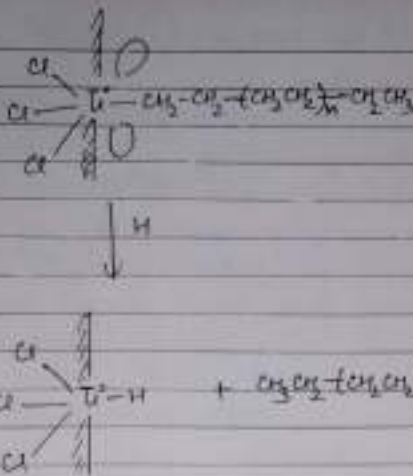 Cl
Cl Ti — CH₂-CH₂-(CH₂CH₂)n-CH₂CH₃
Cl
H
Cl
Cl Ti — H + CH₃CH₂-(CH₂CH₂
Cl